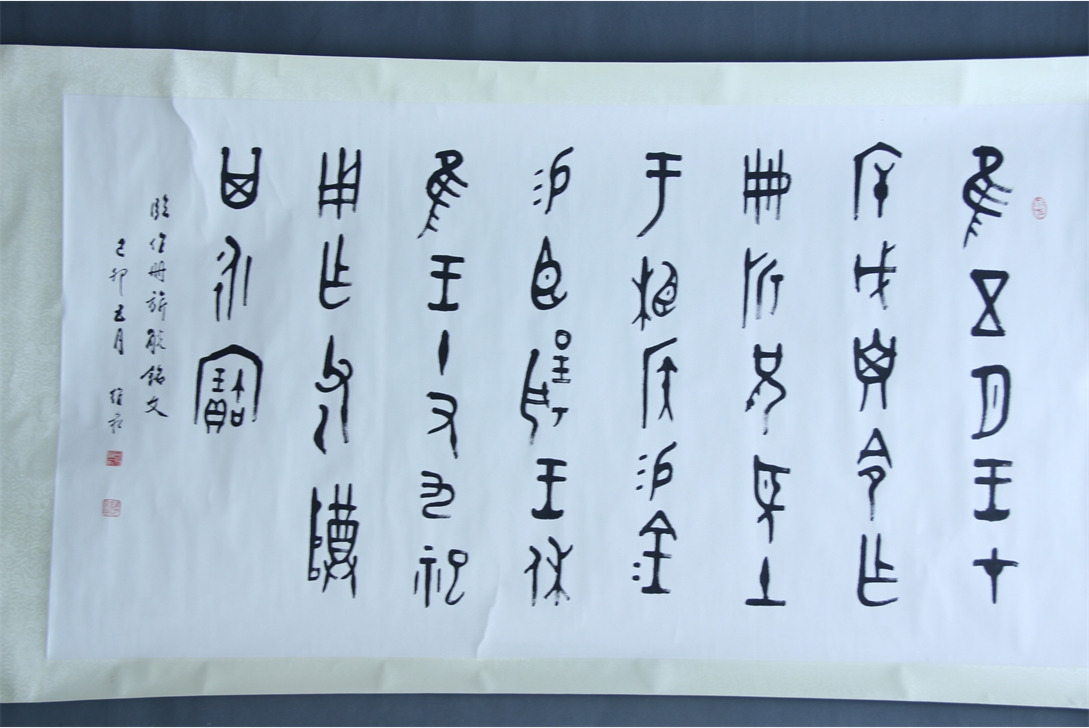 隹五月王才
斥戊子令乍
冊折兄望土
于相侯易金
易臣揚王休
隹王十又九祀
用乍父乙尊
其永寶
臨作冊旂觥銘文
己卯五月